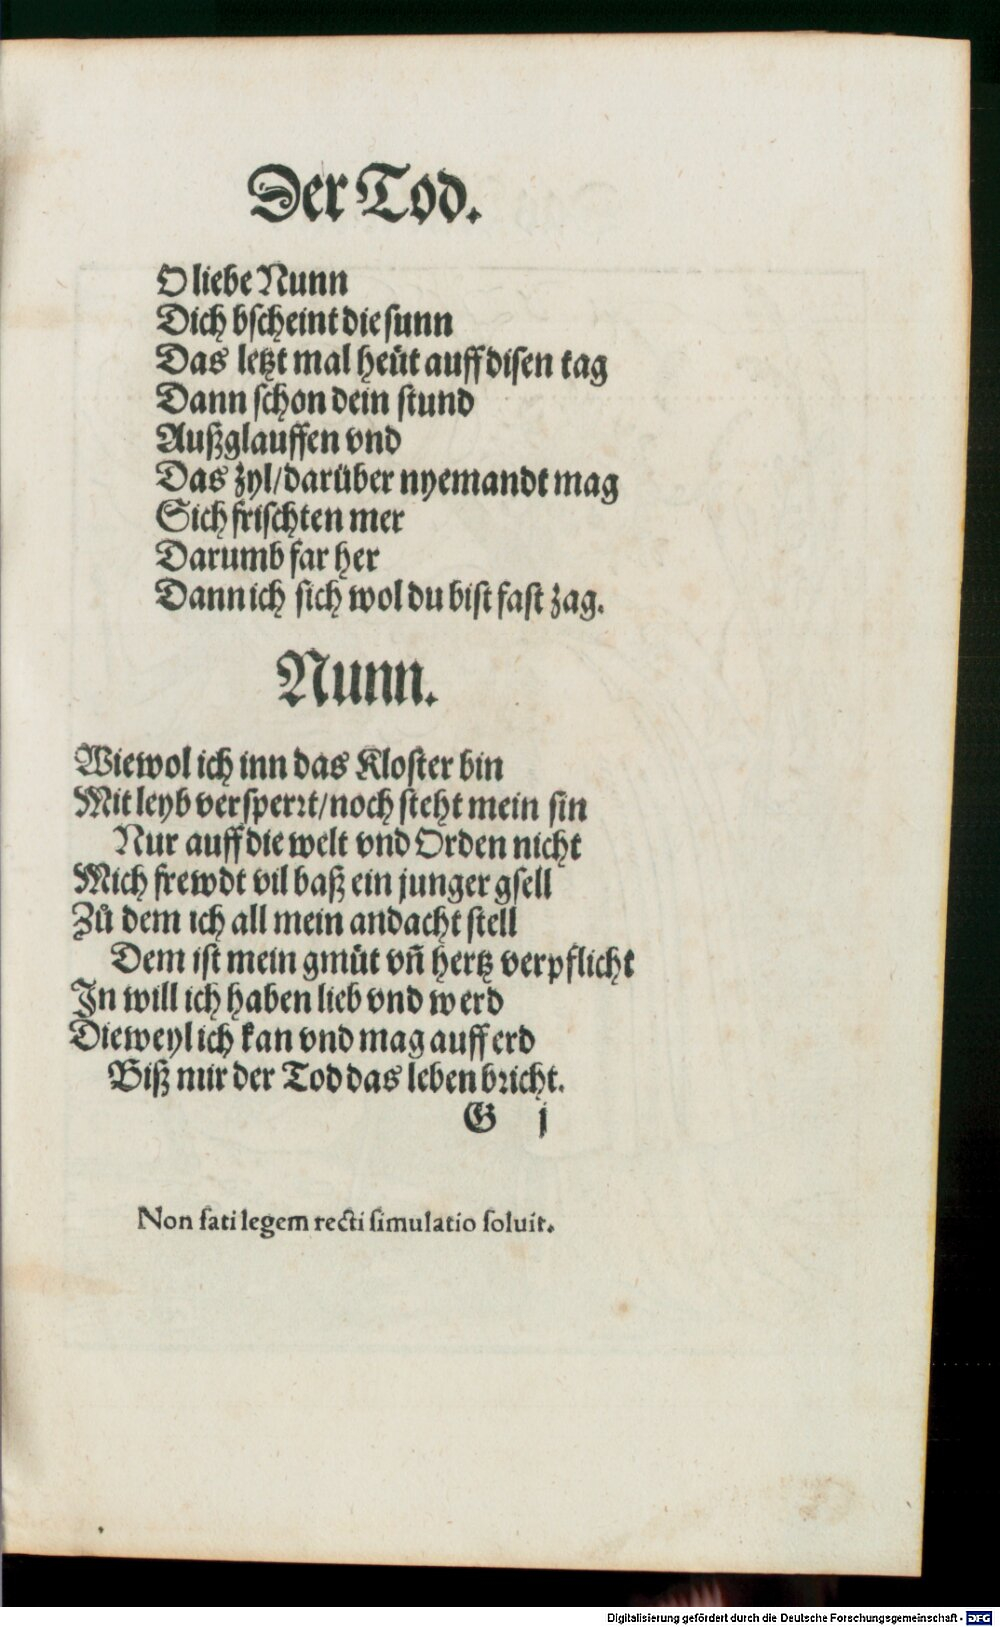 Der Tod.
O liebe Nunn
Dich bscheint die sunn
Das letzt mal heüt auff disen tag
Dann schon dein stund
Außglauffen vnd
Das zyl/darüber nyemandt mag
Sich frischten mer
Darumb far her
Dann ich sich wol du bist fast zag.
Nunn.
Wiewol ich inn das Kloster bin
Mit leyb versperrt/noch steht mein sin
Nur auff die welt vnd Orden nicht
Mich frewdt vil baß ein junger gsell
Zů dem ich all mein andacht stell
Dem ist mein gmüt vñ hertz verpflicht
In will ich haben lieb vnd werd
Dieweyl ich kan vnd mag auff erd
Biß mir der Tod das leben bricht.
G j
Non fati legem recti simulatio soluit.
Digitalisierung gefördert durch die Deutsche Forschungsgemeinschaft - DFG